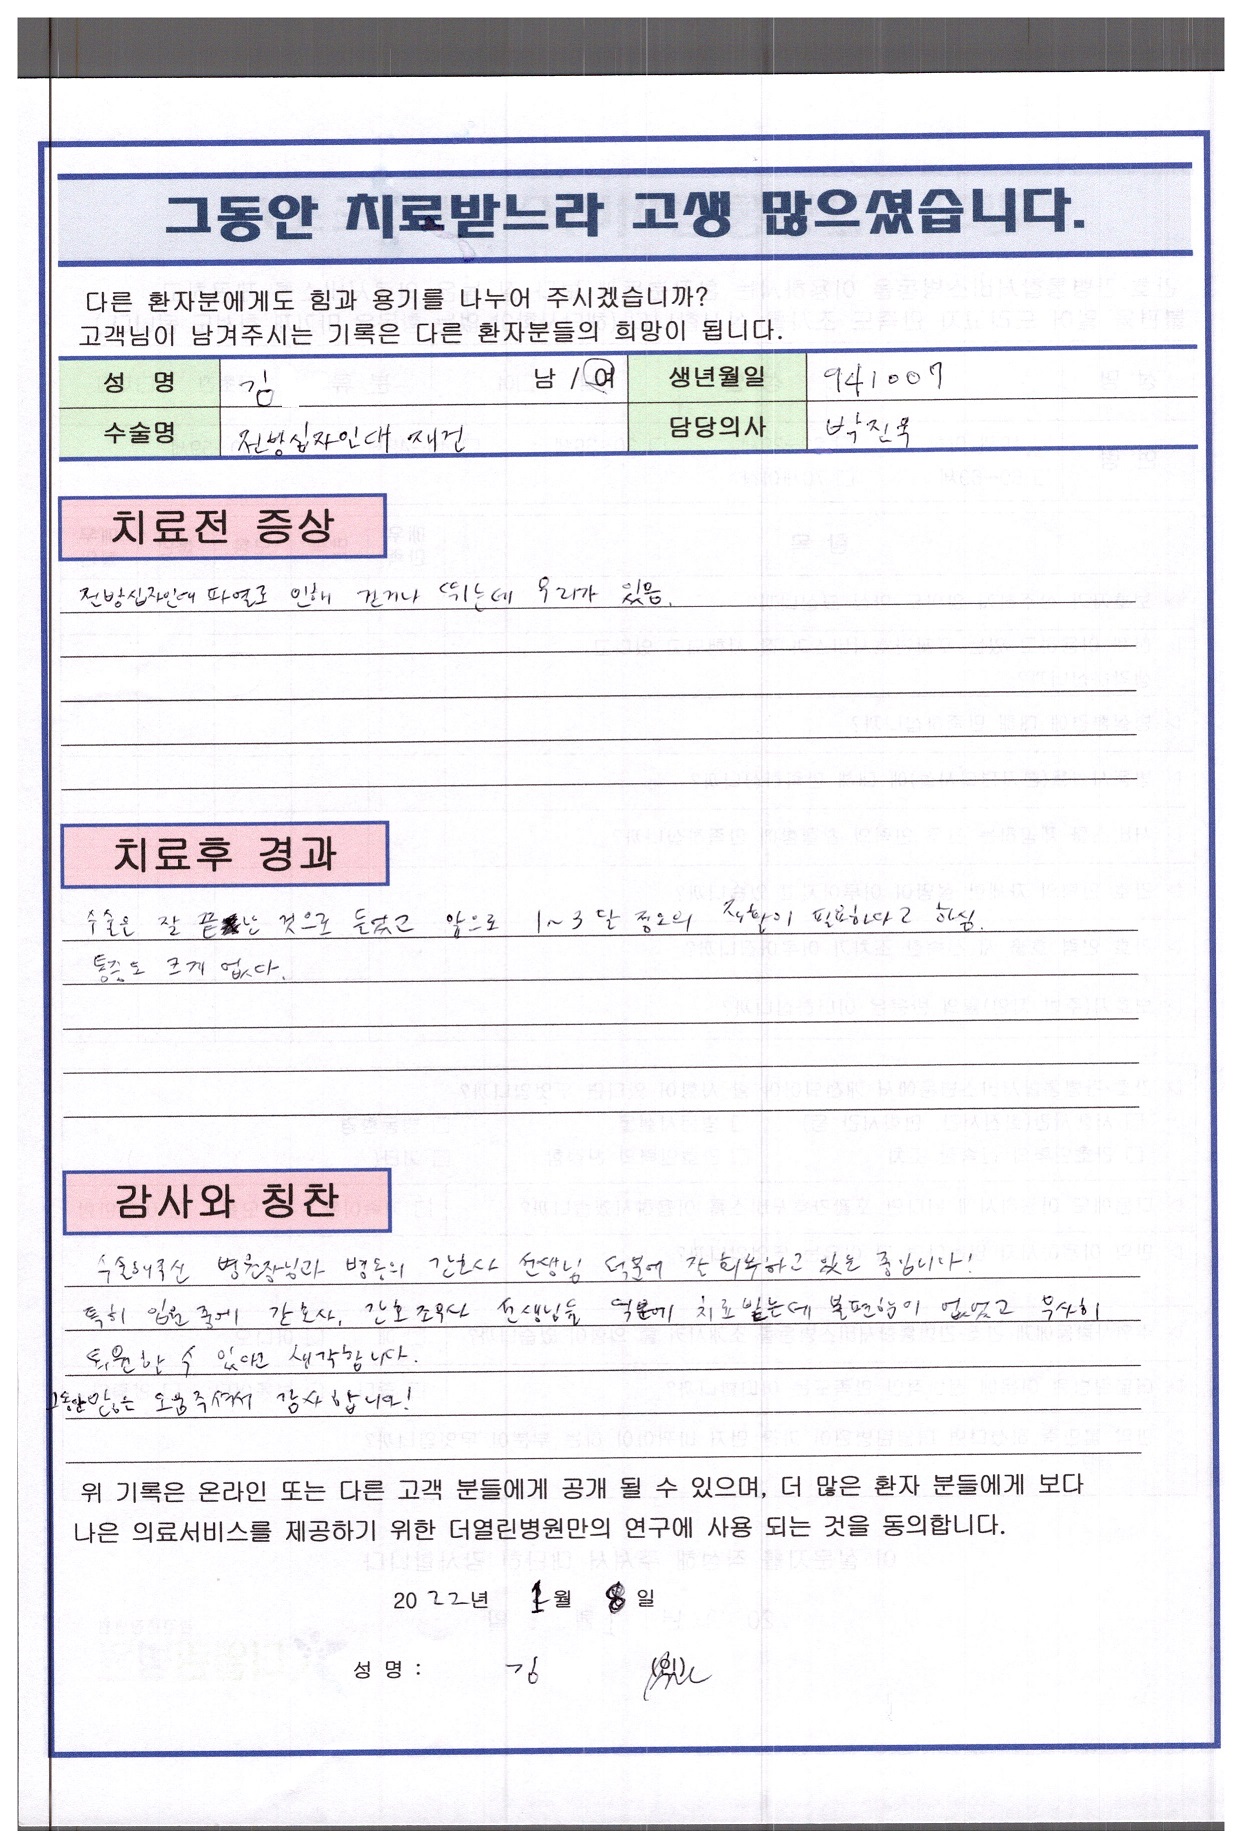 그동안 치료받느라 고생 많으셨습니다.
다른 환자분에게도 힘과 용기를 나누어 주시겠습니까?
고객님이 남겨주시는 기록은 다른 환자분들의 희망이 됩니다.
성 명 김 남 / 여 생년월일 941007
수술명 전방십자인대 재건 담당의사 박진옥
치료전 증상
전방십자인대 파열로 인해 걷거나 뛰는데 무리가 있음.
치료후 경과
수술은 잘 끝난 것으로 들었고 앞으로 1~3달 정도의 재활이 필요하다고 하심.
통증도 크게 없다.
감사와 칭찬
수술해주신 병원장님과 병동의 간호사 선생님 덕분에 잘 회복하고 있는 중입니다!
특히 입원 중에 간호사, 간호조무사 선생님들 덕분에 치료받는데 불편함이 없었고 무사히
퇴원할 수 있다면 생각합니다.
그동안 많은 도움주셔서 감사합니다!
위 기록은 온라인 또는 다른 고객 분들에게 공개 될 수 있으며, 더 많은 환자 분들에게 보다
나은 의료서비스를 제공하기 위한 더열린병원만의 연구에 사용 되는 것을 동의합니다.
2022년 1월 8일
성 명 : 김 (인)